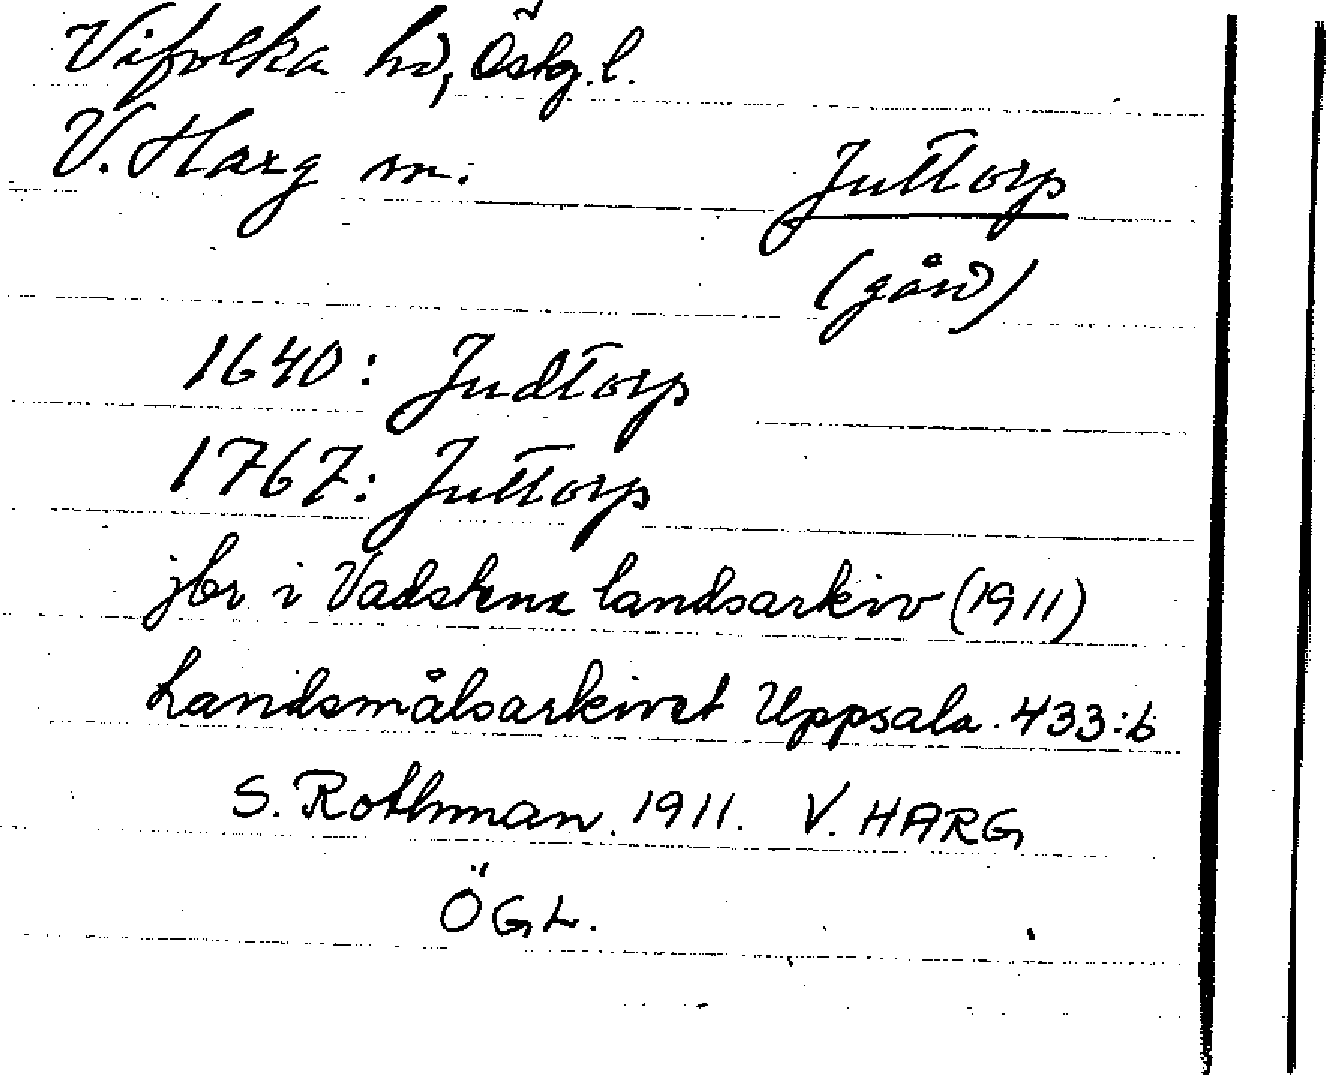 Vifolka hd, Östg. l.
V. Harg sn:
Juttorp
(gård)
1640: Judtorp
1767: Juttorp
jbr i Vadstena landsarkiv (1911)
Landsmålsarkivet Uppsala. 433:b
S. Rothman. 1911. V. HARG
ÖGL.